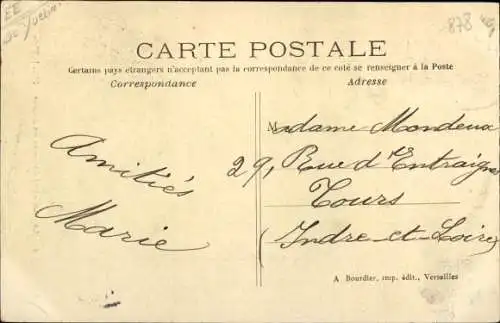 EE
878
CARTE POSTALE
Certains pays étrangers n'acceptant pas la correspondance de ce coté se renseigner à la Poste
Correspondance
Adresse
Amitiés
Marie
Madame Mondeux
29, Rue d'Entraigues
Tours
(Indre-et-Loire)
A Bourdier, imp. édit., Versailles